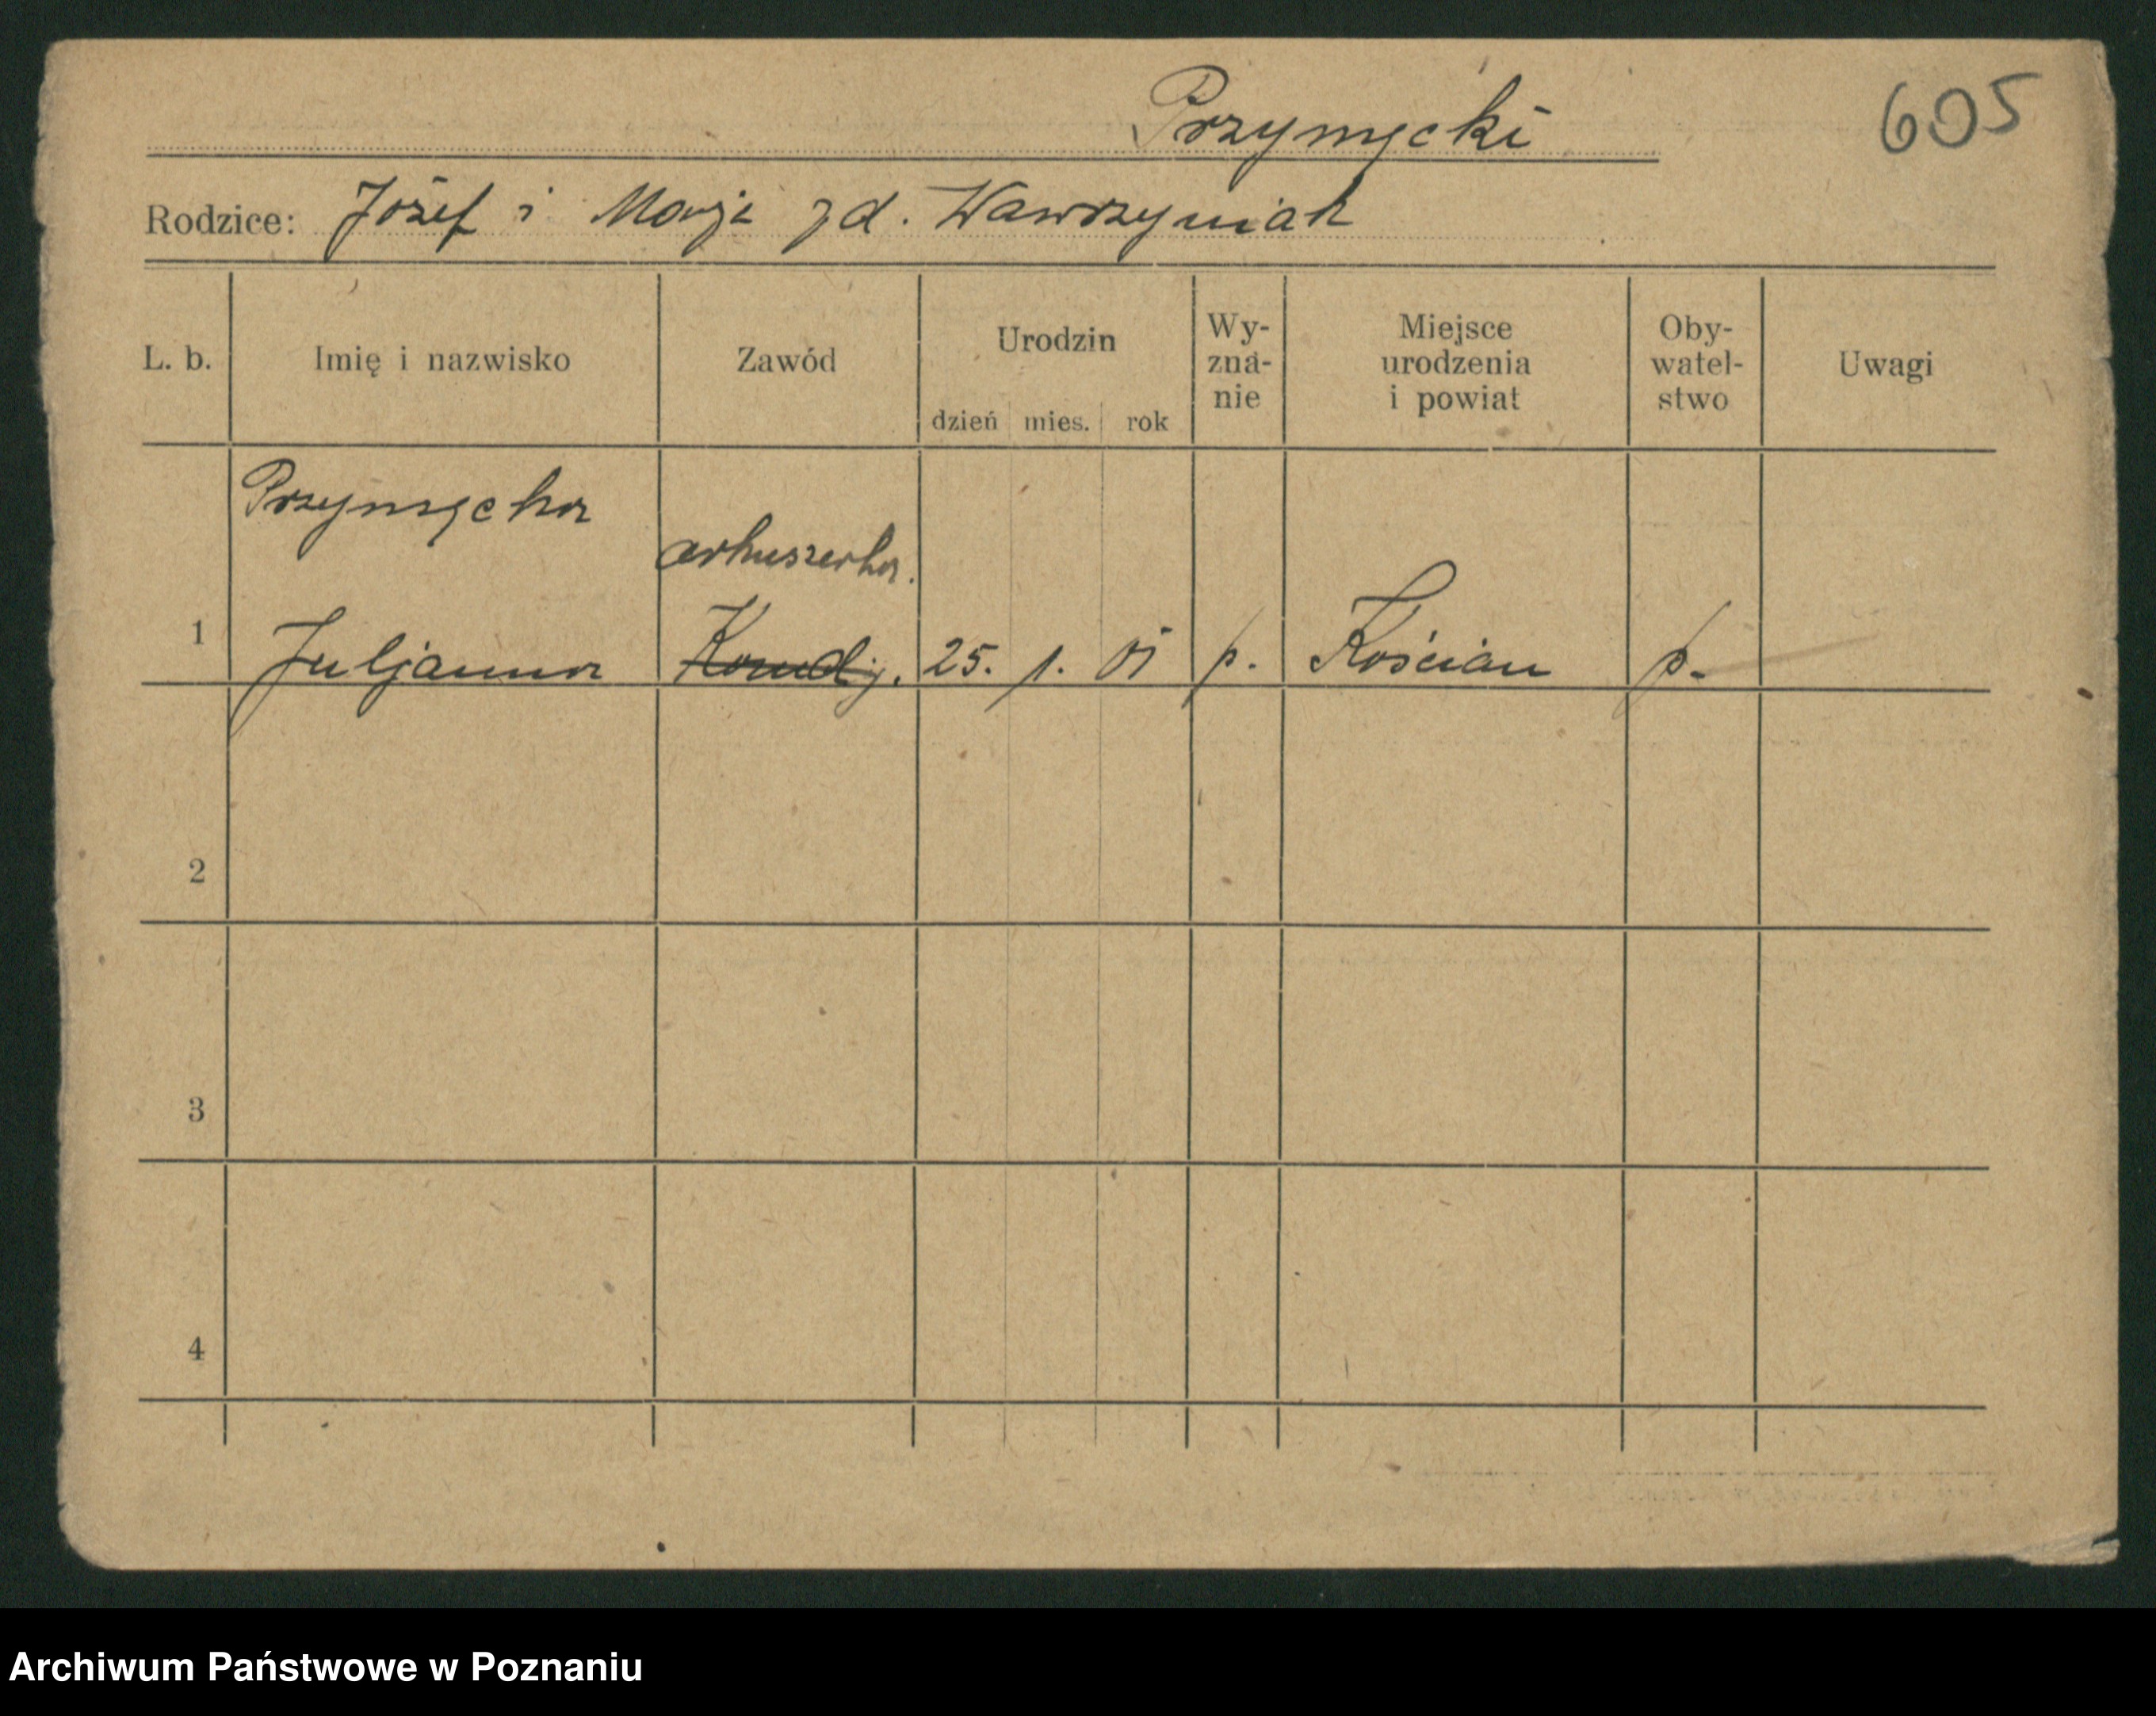 Przymęcki
605
Rodzice: Józef i Marja zd. Wawrzyniak
L. b.
Imię i nazwisko
Zawód
Urodzin
dzień mies. rok
Wy-
zna-
nie
Miejsce
urodzenia
i powiat
Oby-
watel-
stwo
Uwagi
Przymęcka
akuszerka.
1 Juljanna 25. 1. 01 p. Kościan p.
2
3
4
Archiwum Państwowe w Poznaniu